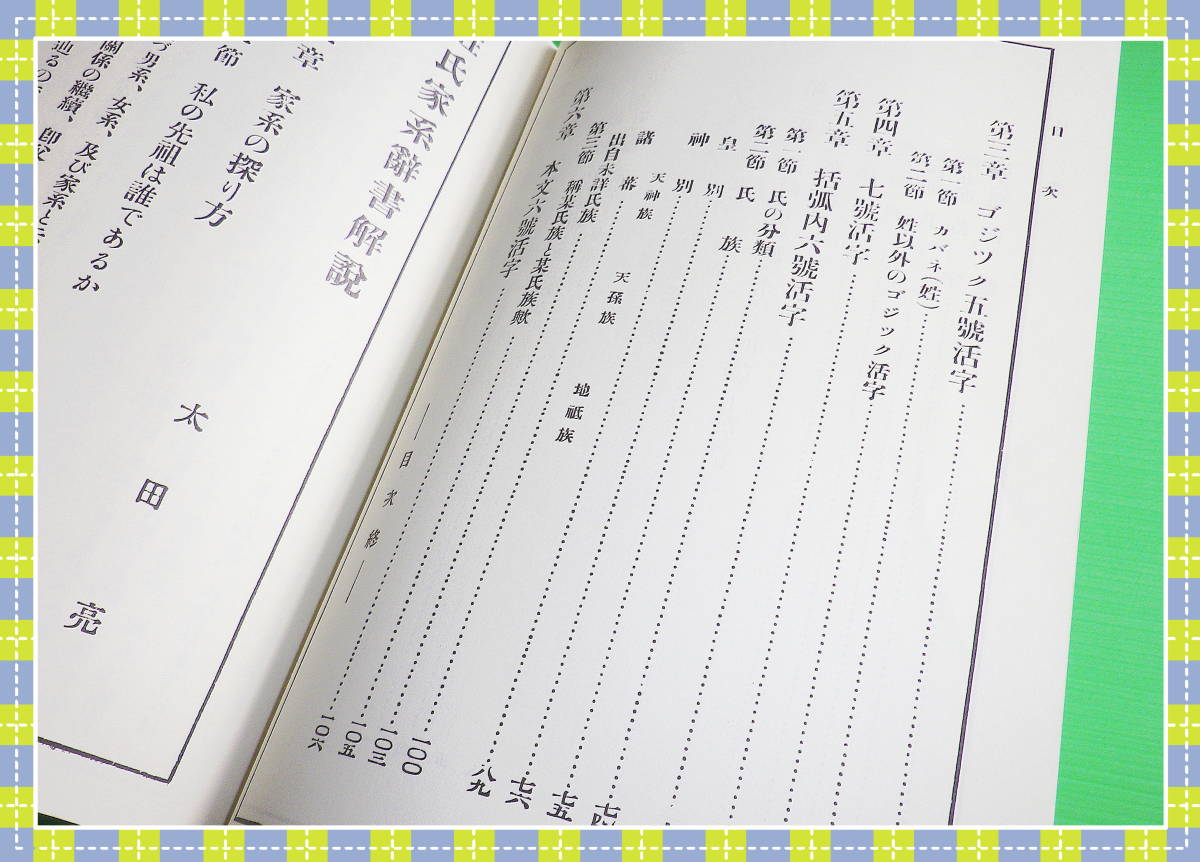 目次
第三章 ゴジツク五號活字
第一節 カバネ(姓)
第二節 姓以外のゴジック活字
第四章 七號活字
第五章 括弧内六號活字
第一節 氏の分類
第二節 氏族
皇別
神別
天神族 天孫族 地祇族
諸蕃
出自未詳氏族
第三節 稱某氏族と某氏族歟
第六章 本文六號活字
七四
七五
七六
八九
一〇〇
一〇三
一〇五
一〇六
―目次終―
氏家系辭書解說
太田亮
章 家系の探り方
節 私の先祖は誰であるか
づ男系、女系、及び家系と云
關係の繼續、卽